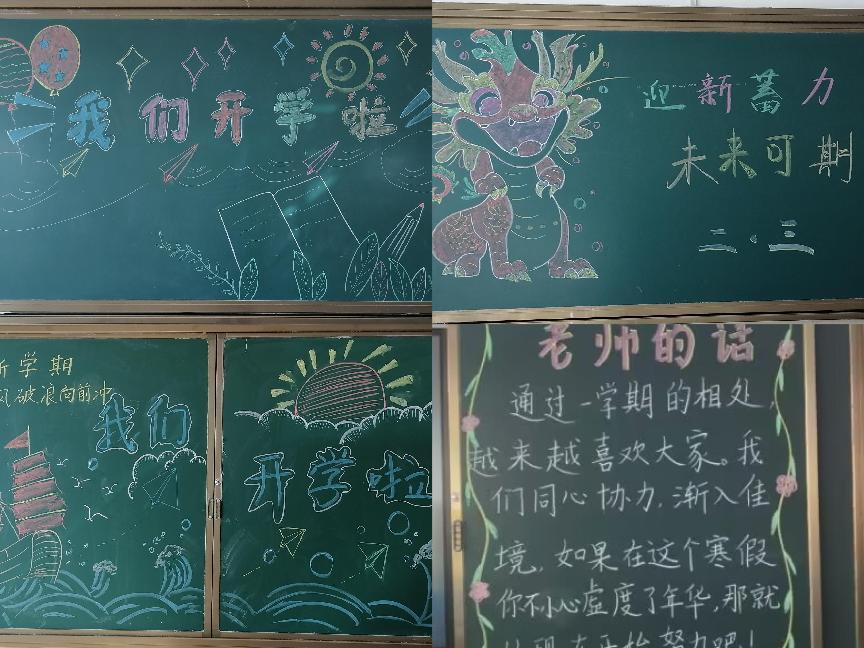 我们开学啦
迎新蓄力
未来可期
二.三
新学期
风破浪向前冲
我们
开学啦
老师的话
通过一学期的相处,
越来越喜欢大家。我
们同心协力,渐入佳
境,如果在这个寒假
你不小心虚度了年华,那就
从现在开始努力吧!